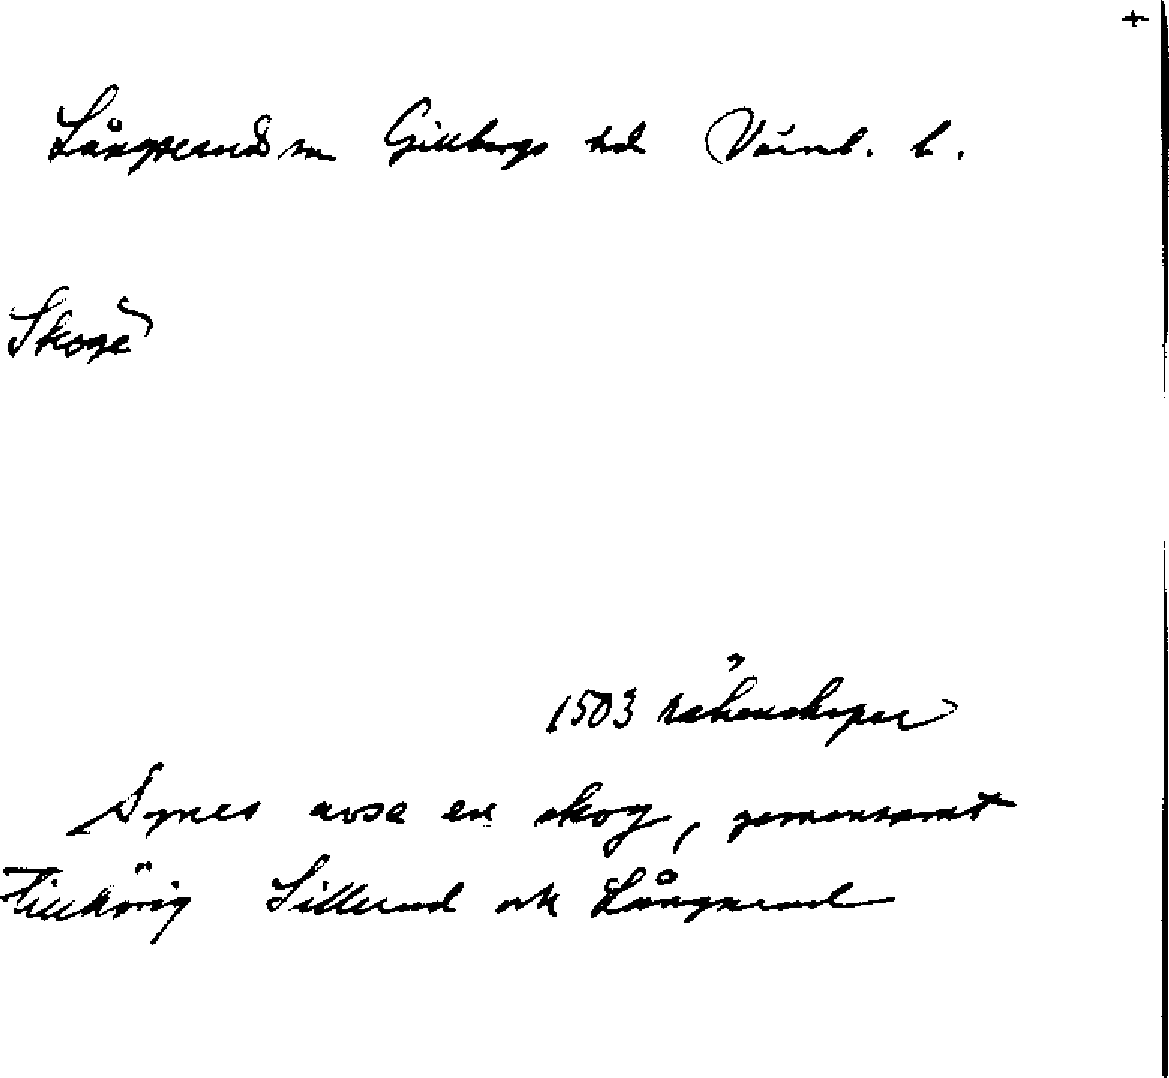 +
Långseruds sn Gillbergs hd Värml. l.
Skoge
1503 räkenskaper
Synes avse en skog, gemensamt
tillhörig Sillerud och Långserud